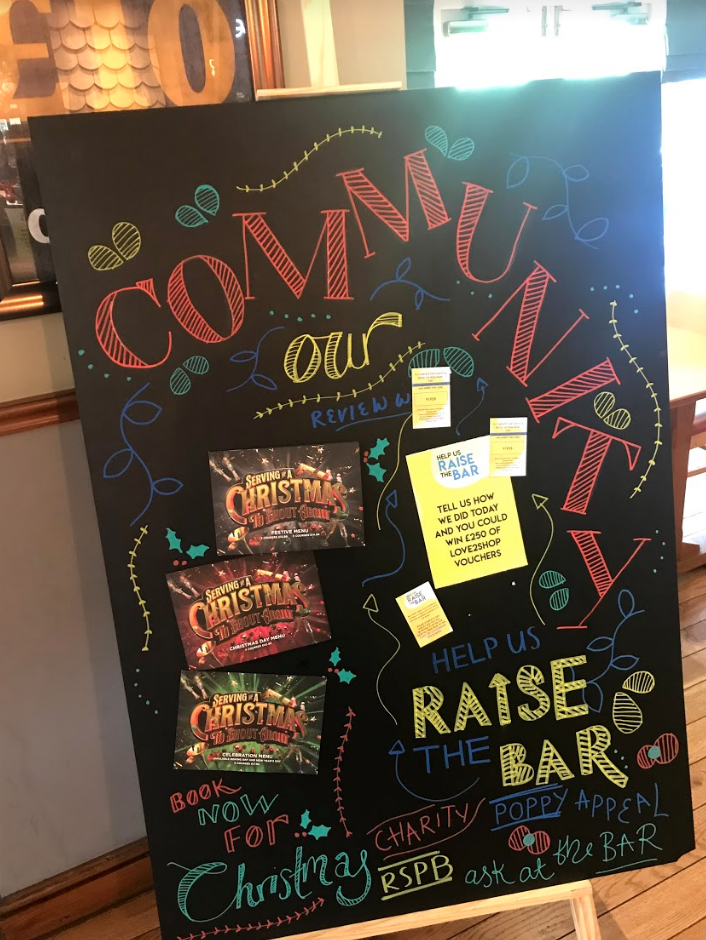 COMMUNITY
our
REVIEW W
HELP US
RAISE
THE BAR
TELL US HOW
WE DID TODAY
AND YOU COULD
WIN £250 OF
LOVE2SHOP
VOUCHERS
SERVING UP A
CHRISTMAS
TO SHOUT ABOUT
FESTIVE MENU
SERVING UP A
CHRISTMAS
TO SHOUT ABOUT
CHRISTMAS DAY MENU
SERVING UP A
CHRISTMAS
TO SHOUT ABOUT
CELEBRATION MENU
RAISE
THE BAR
HELP US
RAISE
THE BAR
BOOK
NOW
FOR
Christmas
CHARITY
POPPY APPEAL
RSPB
ask at the BAR